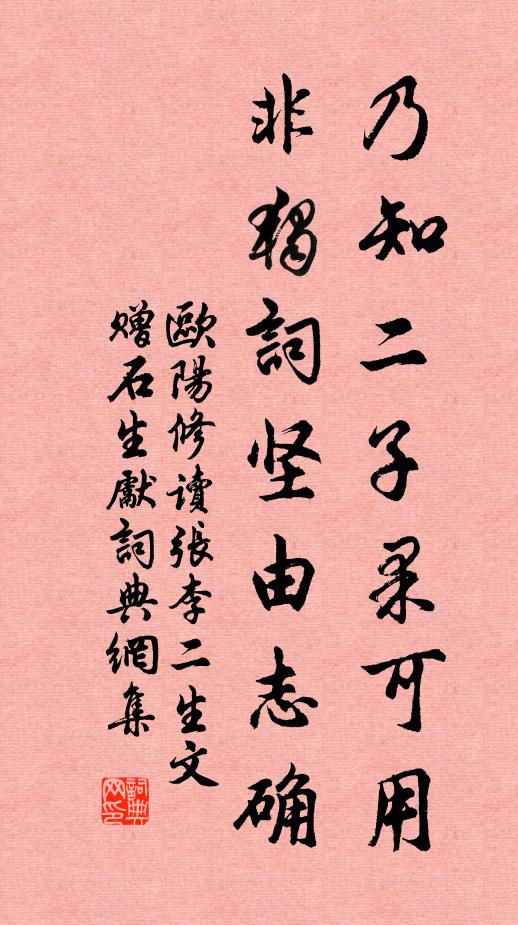 乃知二子果可用
非獨詞坚由志确
歐陽修讀張李二生文
贈石生獻詞典網集
詞典网印